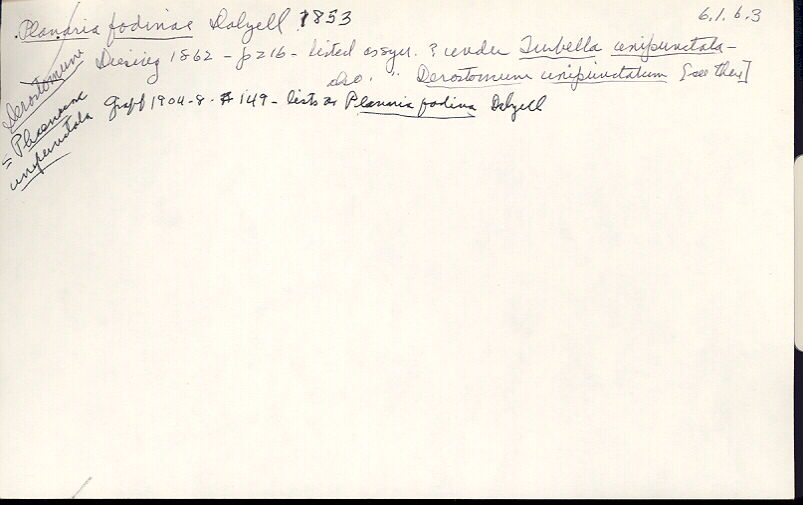 Planaria fodinae Dalyell 1853
6.1.6.3
Diesing 1862 - p 216 - listed as syn. ? under Turbella unipunctata -
also " Derostomum unipunctatum [see this]
Graff 1904-8 - # 149 - lists as Planaria fodina Dalyell
Derostomum
= Plaenocora
unipunctata